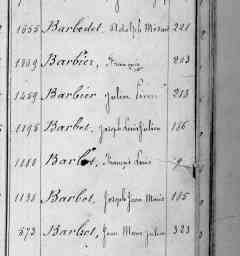 1655 Barbedet, Adolph 221
1869 Barbier, François 213
1459 Barbier Julien 213
1195 Barbot, Joseph Louis Julien 186
1110 Barbot, François Louis 9
1131 Barbot, Joseph Jean Marie 185
573 Barbot, Jean Marie Julien 323